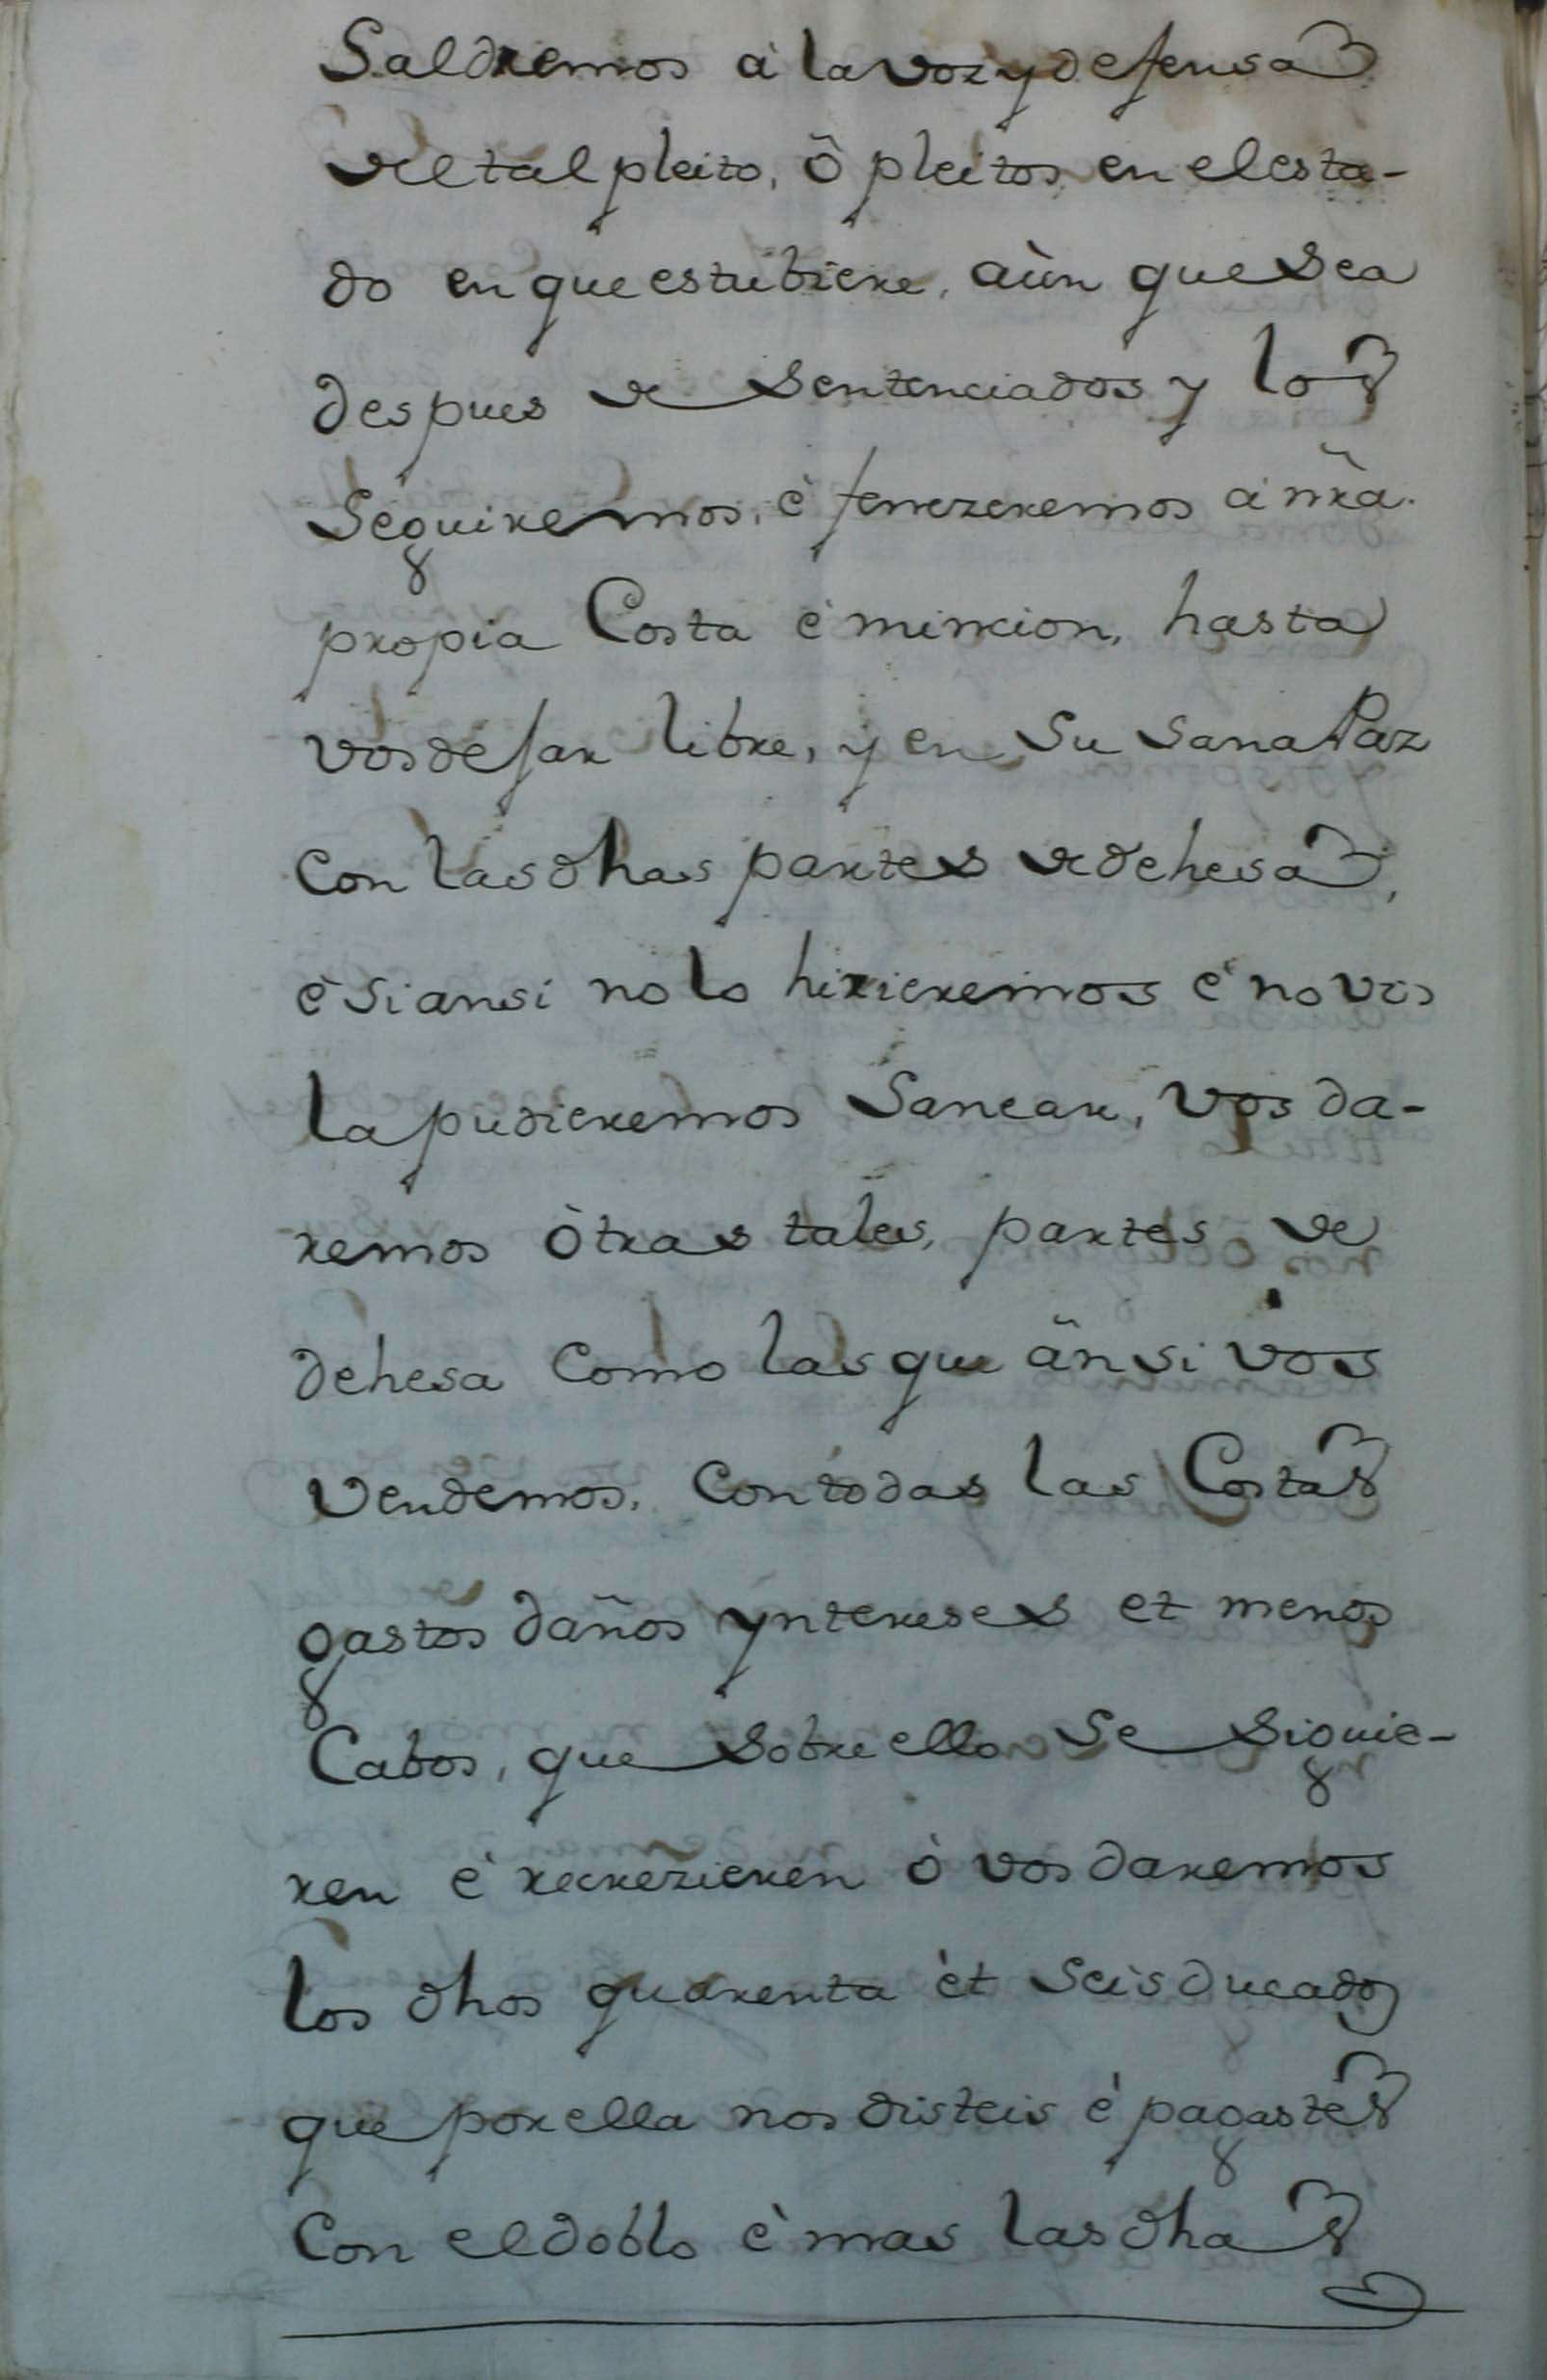 Saldremos à la voz y defensa
del tal pleito, ô pleitos en el esta-
do en que estubiere, aùn que sea
despues de sentenciados y los
Seguiremos, è fenezeremos à nr̃a.
propia Costa è mincion, hasta
vos defar libre, y en su sana Paz
con las dhas partes de dehesa,
è si ansi no lo hizieremos è no vos
la pudieremos Sanear, vos da-
remos òtras tales, partes de
dehesa como las que ânsi vos
vendemos, con todas las Costas
gastos daños yntereses et menos
Cabos, que sobre ello se siguie-
ren è recrezieren ò vos daremos
los dhos quarenta èt seis ducados
que por ella nos disteis è pagastes
con el doblo è mas las dhas